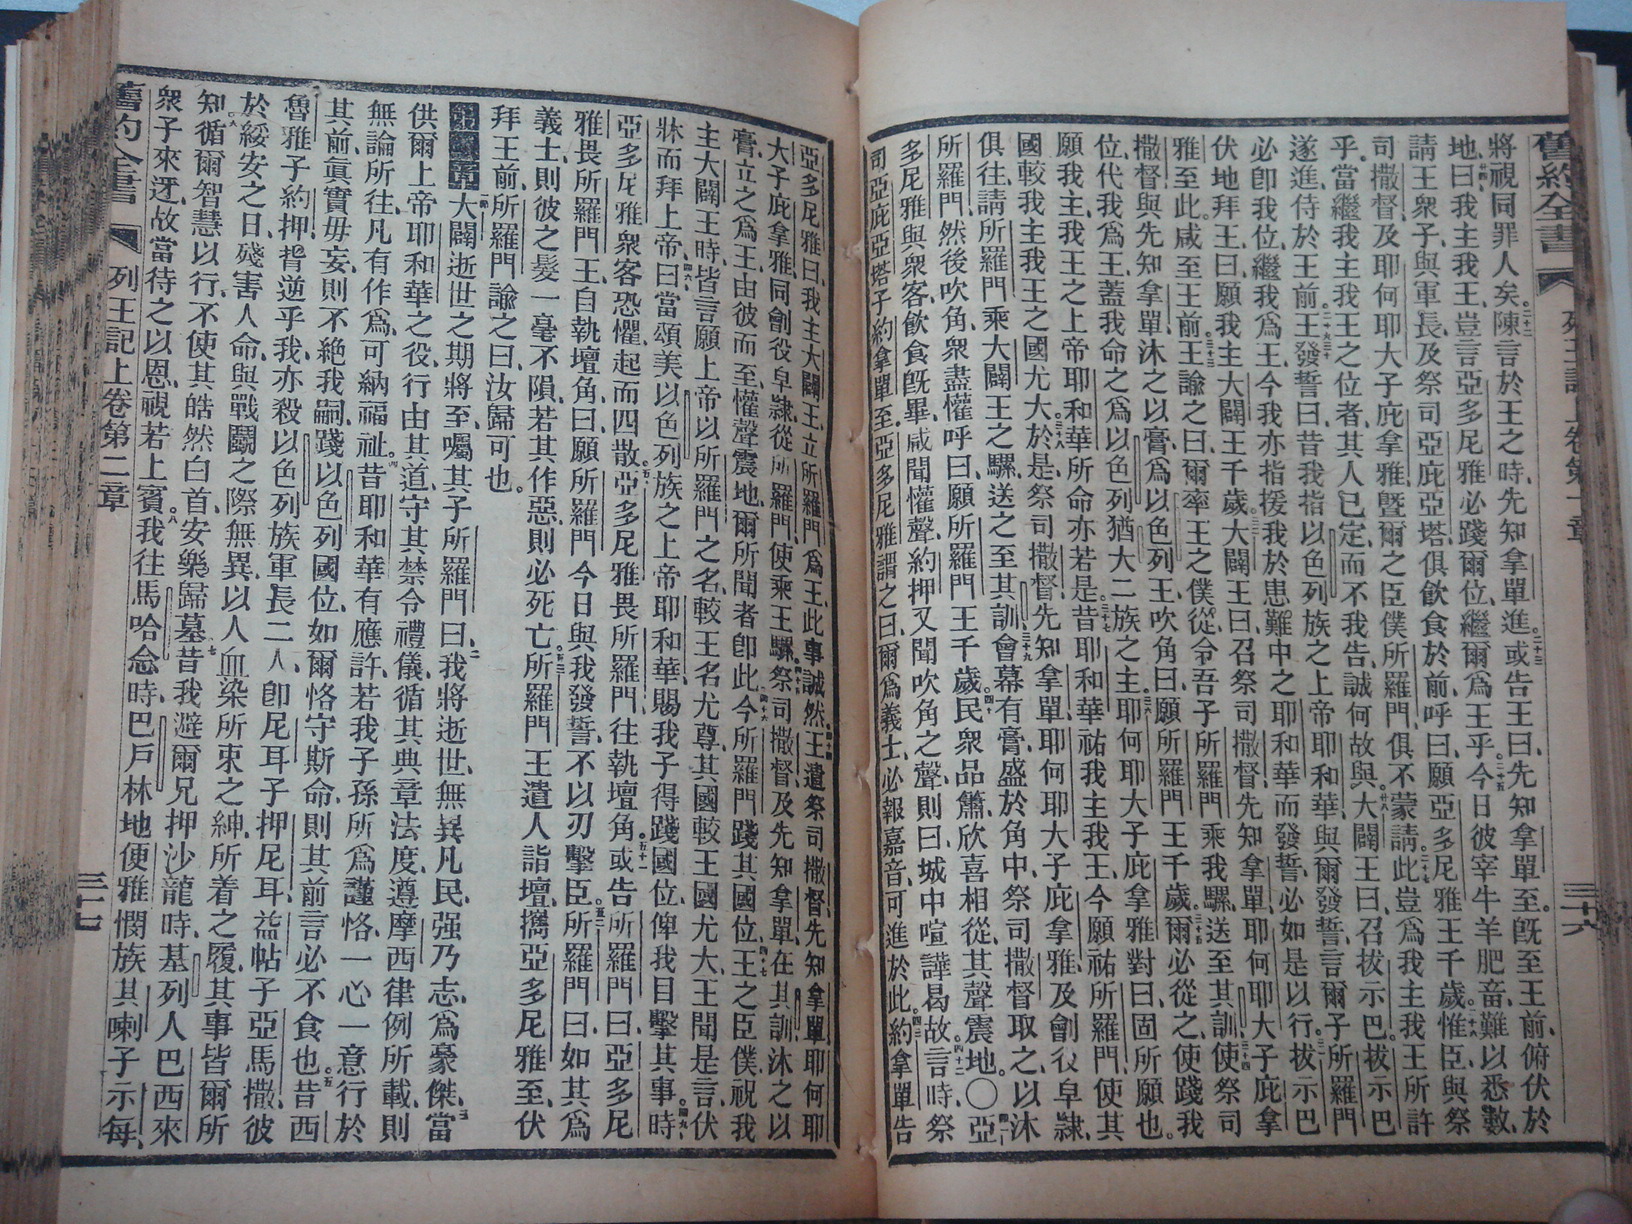 舊約全書 列王記上卷第一章 三十六
將視同罪人矣、二十二陳言於王之時、先知拿單進、二十三或告王曰、先知拿單至。旣至王前、俯伏於
地、二十四曰、我主我王、豈言亞多尼雅必踐爾位、繼爾爲王乎、二十五今日彼宰牛羊肥畜、難以悉數、
請王衆子、與軍長、及祭司亞庇亞塔、俱飲食於前、呼曰、願亞多尼雅王千歲、二十六惟臣與祭
司撒督、及耶何耶大子庇拿雅、曁爾之臣僕所羅門、俱不蒙請、二十七此豈爲我主我王所許
乎、當繼我主我王之位者、其人已定、而不我告、誠何故與、二十八大闢王曰、召拔示巴、拔示巴
遂進侍於王前、二十九王發誓曰、昔我指以色列族之上帝耶和華、與爾發誓、言爾子所羅門
必卽我位、繼我爲王、今我亦指援我於患難中之耶和華而發誓、必如是以行、三十一拔示巴
伏地拜王曰、願我主大闢王千歲、三十二大闢王曰、召祭司撒督、先知拿單、耶何耶大子庇拿
雅至此、咸至王前、三十三王諭之曰、爾率王之僕從、令吾子所羅門乘我騾、送至其訓、三十四使祭司
撒督、與先知拿單、沐之以膏、爲以色列王、吹角曰、願所羅門王千歲、三十五爾必從之、使踐我
位、代我爲王、蓋我命之爲以色列猶大二族之主、三十六耶何耶大子庇拿雅對曰、固所願也。
願我主我王之上帝耶和華所命亦若是、三十七昔耶和華祐我主我王、今願祐所羅門、使其
國較我主我王之國尤大、三十八於是祭司撒督、先知拿單、耶何耶大子庇拿雅、及劊役皁隸、
俱往請所羅門乘大闢王之騾、送之至其訓、三十九會幕有膏、盛於角中、祭司撒督取之、以沐
所羅門、然後吹角、衆盡懽呼曰、願所羅門王千歲、四十民衆品簫、欣喜相從、其聲震地。〇四十一亞
多尼雅與衆客、飲食旣畢、咸聞懽聲、約押又聞吹角之聲、則曰、城中喧譁曷故、四十二言時、祭
司亞庇亞塔子約拿單至、亞多尼雅謂之曰、爾爲義士、必報嘉音、可進於此、四十三約拿單告
亞多尼雅曰、我主大闢王、立所羅門爲王、此事誠然、四十四王遣祭司撒督、先知拿單、耶何耶
大子庇拿雅、同劊役皁隸、從所羅門、使乘王騾、四十五祭司撒督、及先知拿單、在其訓沐之以
膏、立之爲王、由彼而至、懽聲震地、爾所聞者卽此、四十六今所羅門踐其國位、四十七王之臣僕祝我
主大闢王時、皆言願上帝以所羅門之名、較王名尤尊、其國較王國尤大、王聞是言、伏
牀而拜上帝、四十八曰、當頌美以色列族之上帝耶和華、賜我子得踐國位、俾我目擊其事、四十九時
亞多尼雅衆客恐懼、起而四散、五十亞多尼雅畏所羅門、往執壇角、五十一或告所羅門曰、亞多尼
雅畏所羅門王、自執壇角、曰、願所羅門今日與我發誓、不以刃擊臣、五十二所羅門曰、如其爲
義士、則彼之髮、一毫不隕、若其作惡、則必死亡、五十三所羅門王遣人詣壇、攜亞多尼雅至、伏
拜王前、所羅門諭之曰、汝歸可也。
第二章 一大闢逝世之期將至、囑其子所羅門曰、二我將逝世、無異凡民、强乃志、爲豪傑、三當
供爾上帝耶和華之役、行由其道、守其禁令禮儀、循其典章法度、遵摩西律例所載、則
無論所往、凡有作爲、可納福祉、四昔耶和華有應許、若我子孫所爲謹恪、一心一意行於
其前、眞實毋妄、則不絕我嗣、踐以色列國位、如爾恪守斯命、則其前言必不食也、五昔西
魯雅子約押、背逆乎我、亦殺以色列族軍長二人、卽尼耳子押尼耳、益帖子亞馬撒、彼
於綏安之日、殘害人命、與戰鬬之際無異、以人血染所束之紳、所着之履、其事皆爾所
知、六循爾智慧以行、不使其皓然白首、安樂歸墓、七昔我避爾兄押沙龍時、基列人巴西來
衆子來迓、故當待之以恩、視若上賓、八我往馬哈念時、巴戶林地便雅憫族其喇子示每、
舊約全書 列王記上卷第二章 三十七